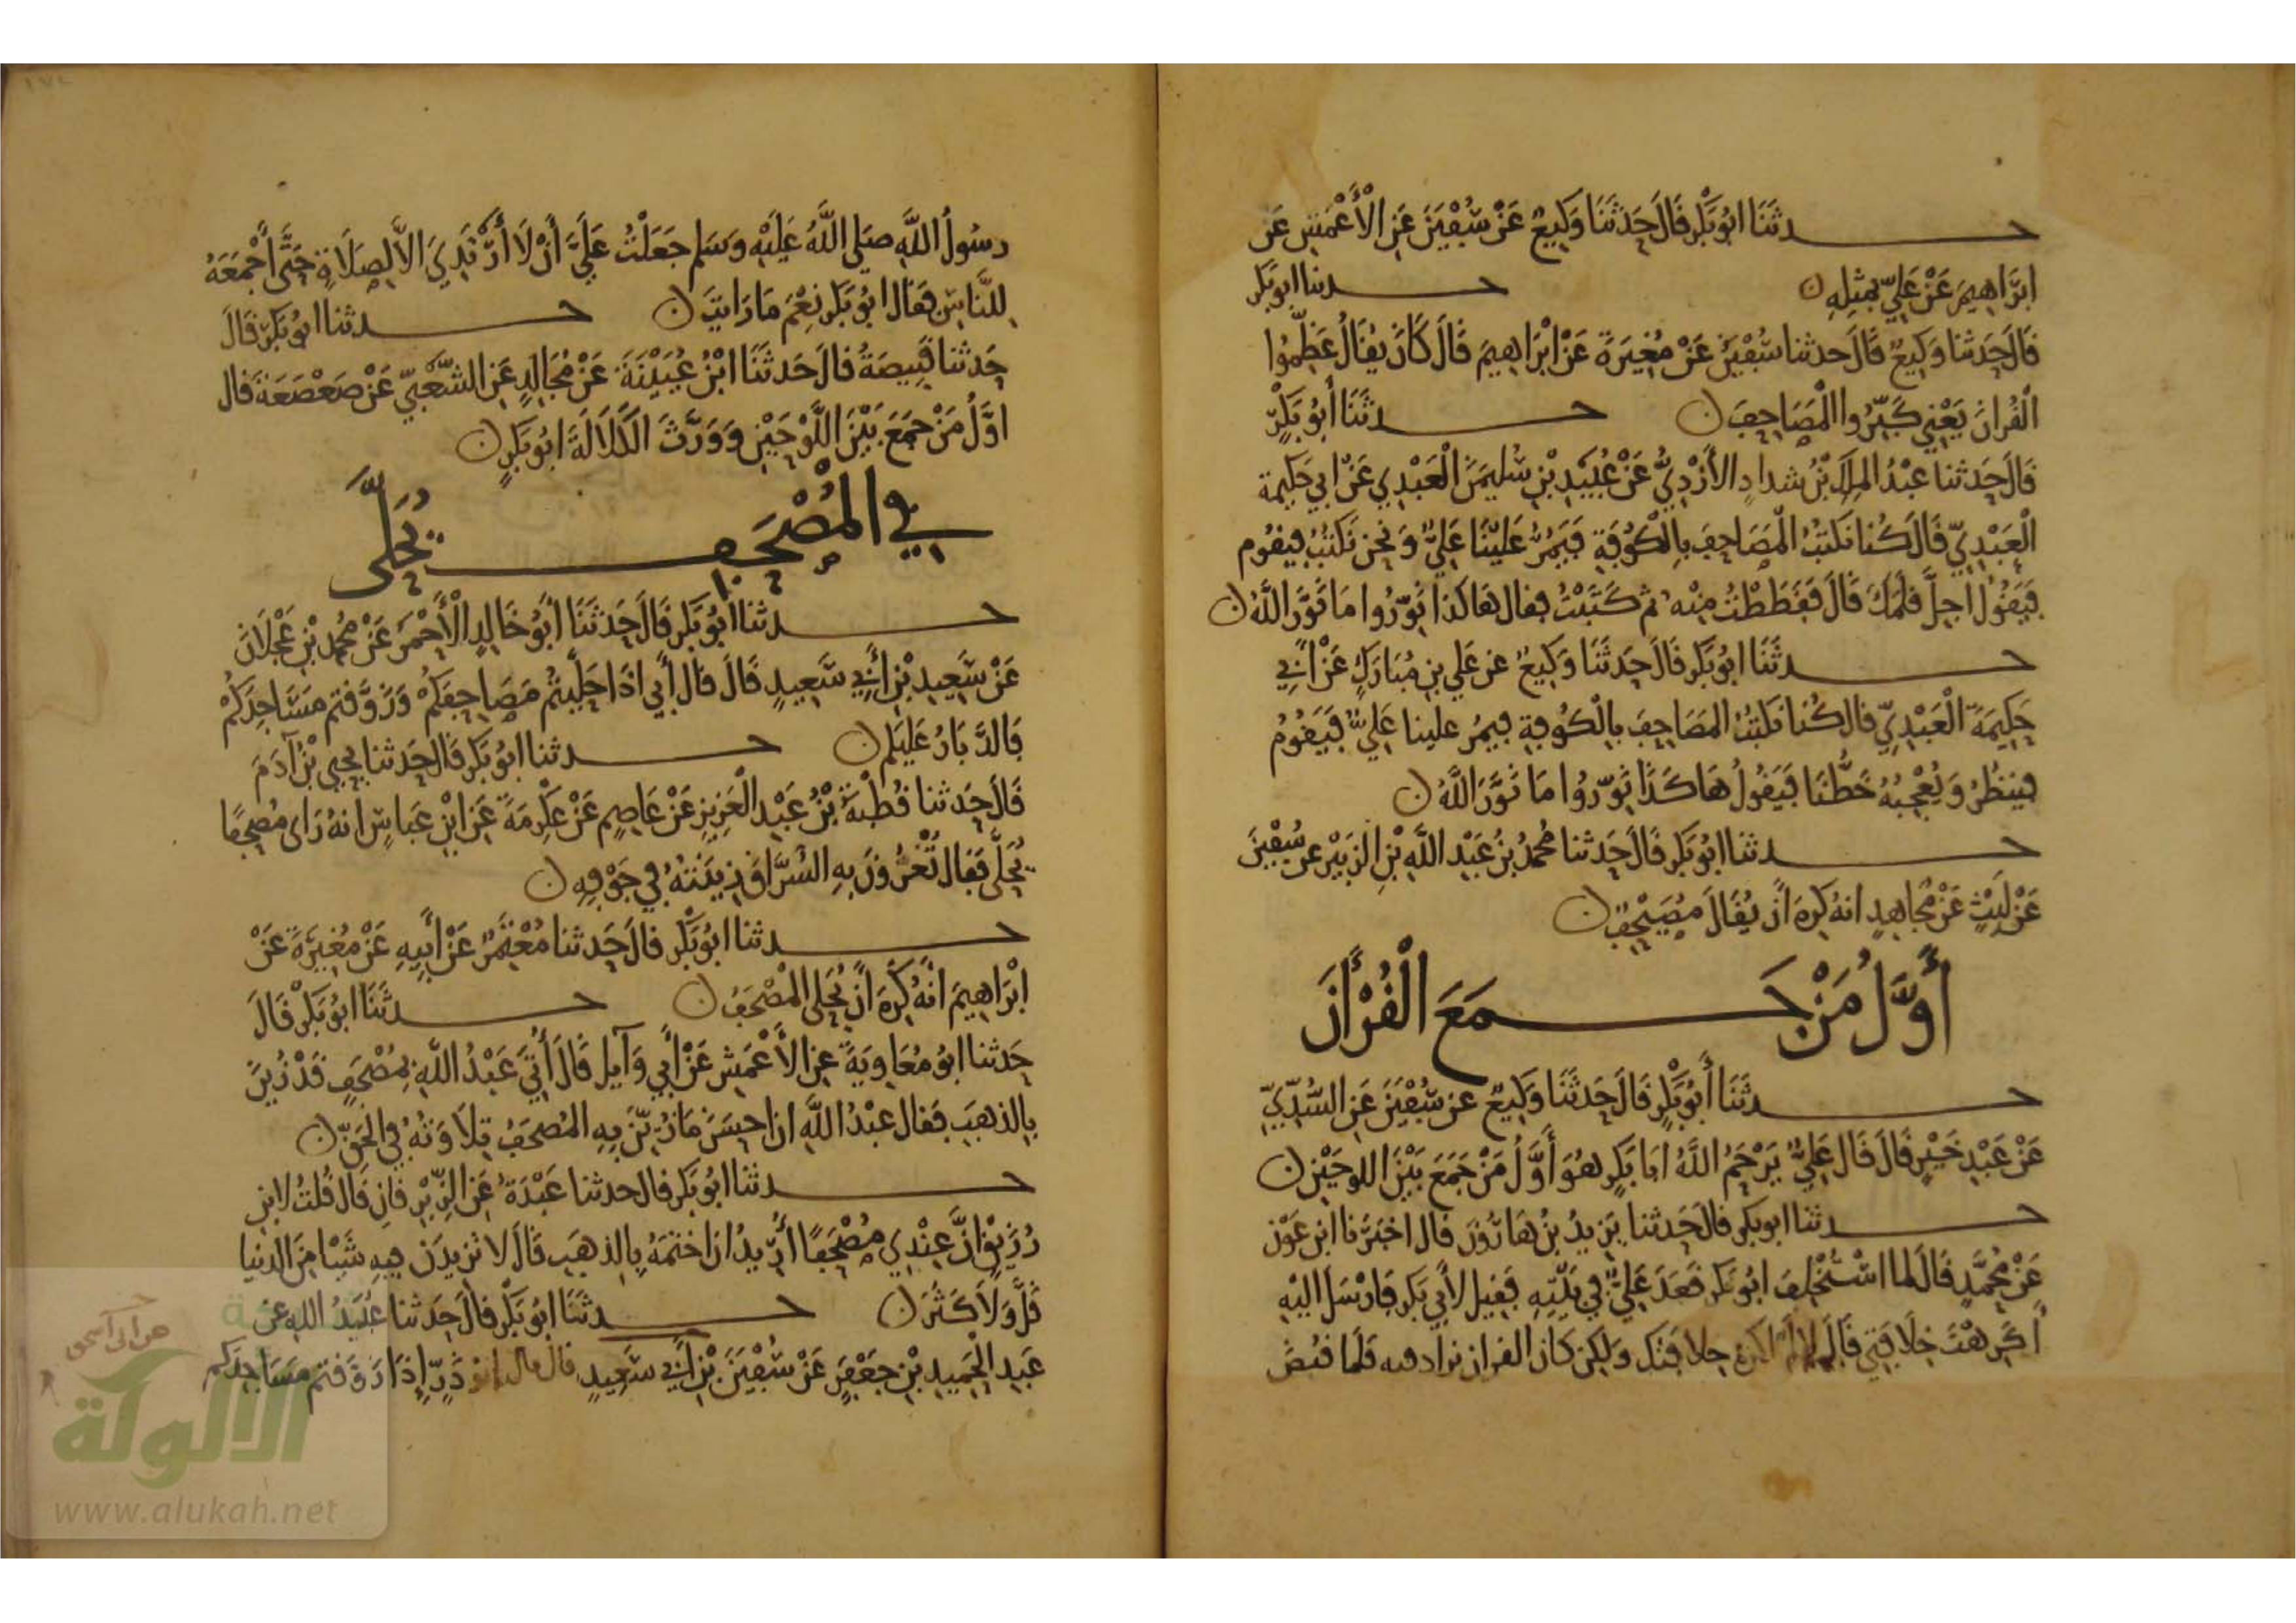 حدثنا ابُو بَكر قَالَ حَدثَنَا وَكِيعٌ عَنْ سُفْيَنَ عَنِ الأَعْمَشِ عَن
ابرَاهِيمَ عَنْ عَلِيّ بمثِلِهِ ن حدثنا ابو بَكر
قَالَ حَدثنا وَكِيعٌ قَالَ حدثنا سُفْيَنُ عَنْ مُغِيَرةَ عَنْ ابْرَاهِيمَ قَالَ كَانَ يُقَالُ عَظِّمُوا
الْقُرانَ يَعْنِي كَبِّرُوا الْمَصَاحِفَ ن حدثَنَا أبُو بَكْرٍ
قَالَ حَدثنا عَبْدُ المَلِكِ بْنُ شدادٍ الأزْدِيُّ عَنْ عُبَيْدِ بْنِ سُليمَنَ الْعَبْدِي عَنْ ابي حَكِيمة
الْعَبْدِيّ قَالَ كُنا نكتُبُ الْمَصَاحِفَ بِالْكُوفَةِ فَيَمُرُّ عَليْنَا عَلِيٌّ وَنحن نَكتُبُ فيقُوم
فَيَقُولُ اجِلَّ قلَمَكَ قَالَ فَقَطَطْتُ مِنْه ثم كَتَبْتُ فقال هَاكذا نَوّرُوا مَا نَوَّرَ اللَّهُ ن
حدثَنَا ابُو بَكر قَالَ حَدثَنَا وَكِيعٌ عن عَلي بنِ مُبَارَكٍ عَنْ أبِي
حَكِيمَة الْعَبْدِيّ قال كُنا نَكتُبُ المَصَاحِفَ بِالْكُوفةِ فيمُر علينا عَلِيٌّ فَيَقُومُ
فينظُرُ وَيُعْجِبُهُ خَطُّنَا فَيَقُولُ هَاكَذَا نَوّرُوا مَا نَوَّرَ اللَّهُ ن
حدثنا ابُو بَكر قَالَ حَدثنا مُحمدُ بنُ عَبْدِ اللَّهِ بْنِ الزبَيْر عن سُفْيَنَ
عَنْ لَيْثٍ عَنْ مُجَاهِدٍ انهُ كَرِهَ انْ يُقَالَ مُصَيْحِفٌ ن
أَوَّلُ مَنْ جَمَعَ الْقُرْأنَ
حدثَنَا أبُو بَكْرٍ قَالَ حَدثَنَا وَكِيعٌ عن سُفْيَنَ عَنِ السُّدِّيّ
عَنْ عَبْدِ خَيْرٍ قَالَ قَال عَلِيٌّ يَرْحَمُ اللَّهُ ابَا بَكرٍ هُوَ أَوَّلُ مَنْ جَمَعَ بَيْنَ اللوحَيْنِ ن
حدثنا ابو بكر قالَ حَدثنا يَزِيدُ بنُ هَارُونَ قال اخبَرَنا ابن عَوْن
عَنْ مُحَمَّدٍ قَالَ لما اسْتُخْلِفَ ابُو بَكر قَعَدَ عَلِيٌّ في بَيْتِهِ فَقِيلَ لأبي بَكر فَارْسَلَ اليْهِ
أكَرِهْتَ خِلَافَتِي قَالَ لا لم اكره خلافتك وَلكِن كان القران يزاد فيه فَلمَا قبُضَ
رسُولُ اللَّهِ صَلى اللَّهُ عَليْهِ وَسَلم جَعَلْتُ عَلَيَّ أنْ لَا أَرْتَدِيَ الاَّ لِصلَاةٍ حَتَّى أَجْمَعَهُ
للنَّاسِ فقَال ابُو بَكر نِعْمَ مَا رَايْتَ ن حدثنا ابُو بَكر قَالَ
حَدثنا قَبِيصَةُ قالَ حَدثَنَا ابْنُ عُيَيْنَةَ عَنْ مُجَالِدٍ عَنِ الشَّعْبِيّ عَنْ صَعْصَعَةَ قال
اوَّلُ مَنْ جَمَعَ بَيْنَ اللَّوْحَيْنِ وَوَرَّثَ الكَلَالَةَ ابُو بَكرٍ ن
فِي الْمُصْحَفِ يُحَلَّى
حدثنا ابُو بَكر قَالَ حَدثَنَا أبُو خَالِدٍ الأَحْمَرُ عَنْ مُحمد بْنِ عَجْلَانَ
عَنْ سَعِيدِ بْنِ أَبِي سَعِيدٍ قَالَ قال أبي اذَا حَلَّيتُمْ مَصَاحِفَكُمْ وَزَوَّقتم مَسَاجِدَكُمْ
فَالدَّبَارُ عَلَيكُم ن حدثنا ابُو بَكر قَال حَدثنا يَحيي بْنُ آدَمَ
قَالَ حَدثنا قُطْبَةُ بْنُ عَبْدِ الْعَزِيزِ عَنْ عَاصِمٍ عَنْ عكْرِمَةَ عَنِ ابْنِ عَباسٍ انهُ رَاى مُصحَفًا
يُحَلَّى فَقَال تُغْرُونَ بِهِ السُّرَّاقَ زِينَتُهُ فِي جَوْفِهِ ن
حدثنا ابُو بَكْر قالَ حَدثنا مُعْتَمِرٌ عَنْ أَبِيهِ عَنْ مُغِيرَةَ عَنْ
ابْرَاهِيمَ أنَّهُ كَرِهَ انْ يُحَلى المُصْحَفُ ن حدثَنَا ابُو بَكْر قَالَ
حَدثنا ابُو مُعَاوِيَةَ عنِ الأَعْمَشِ عَنْ أَبِي وَآيِل قَالَ أُتِيَ عَبْدُ اللَّهِ بمُصْحَفٍ قَدْ زُيِّنَ
بِالذهَبِ فقَال عَبْدُ اللَّهِ ان احسَنَ مَا زُيّنَ بِهِ المُصحَفُ تِلَاوَتُهُ في الحَقِّ ن
حدثنا ابُو بَكر قال حدثنا عَبْدَةُ عَنِ الزّبْرِقَانِ قَال قُلتُ لابي
رُزَيْنٍ انَّ عِنْدِي مُصْحَفًا أُرِيدُ ان اختمَهُ بِالذهَبِ قَالَ لَا تَزِيدَن فِيهِ شَيْئا مِنَ الدنيا
قَلَّ وَلَا كَثُرَ ن حدثَنَا ابُو بَكْر قالَ حَدثنا عُبَيْدُ اللهِ عن
عَبدِ الْحَمِيدِ بْنِ جعْفَرٍ عَنْ سُفْيَنَ بْنِ أبي سَعِيدٍ قال قال ابو ذَرٍّ إِذَا زَوَّقتم مَسَاجِدَكم
الألوكة
www.alukah.net